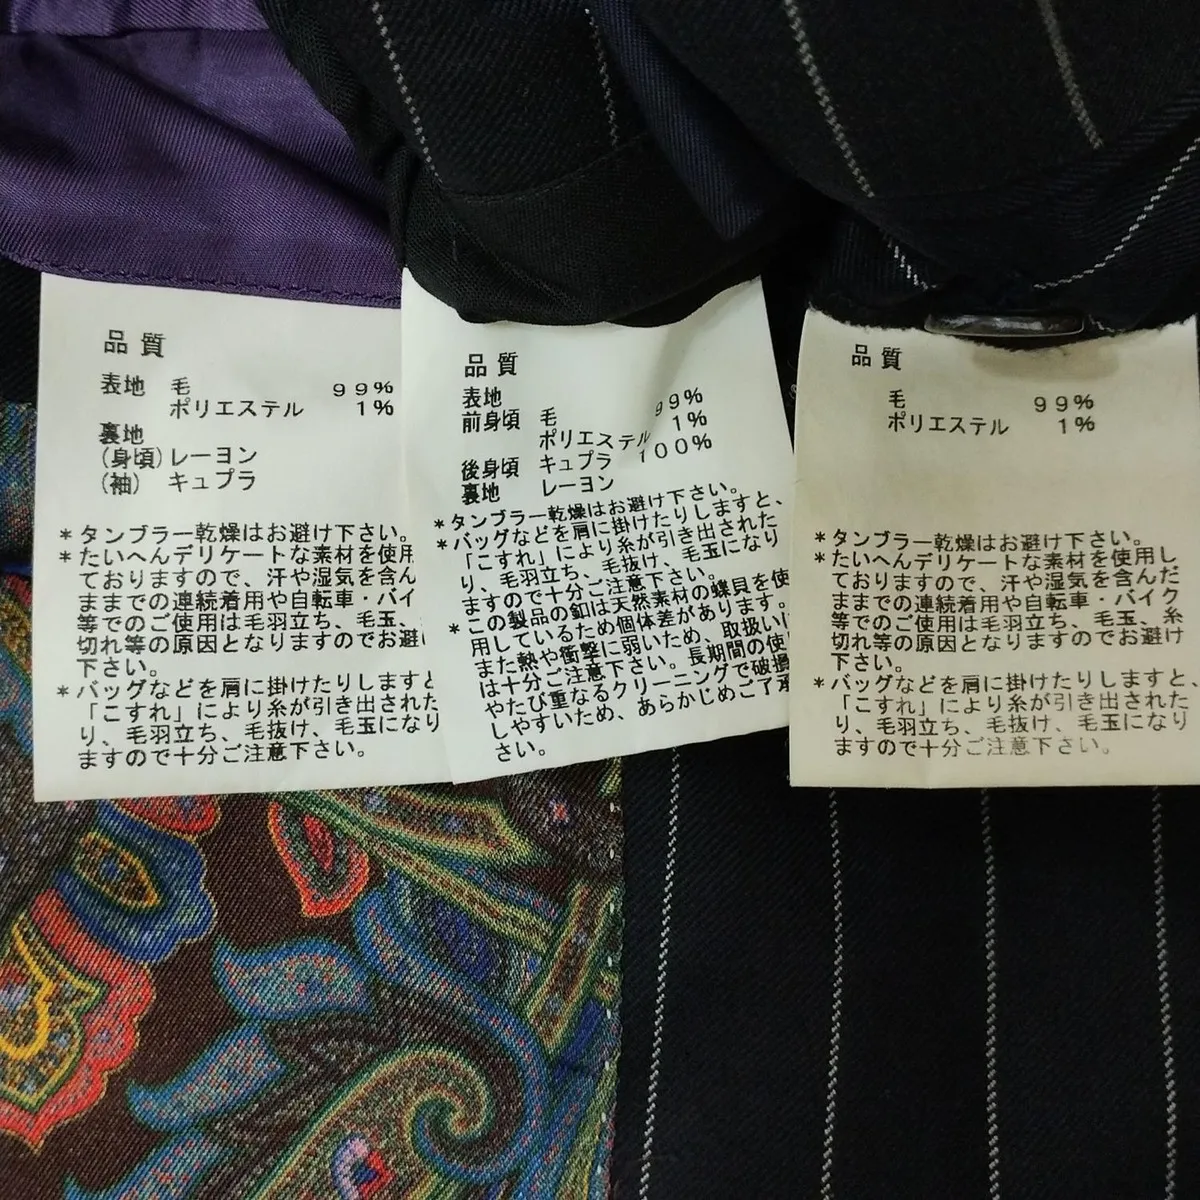 品質
表地 毛 99%
ポリエステル 1%
裏地
(身頃)レーヨン
(袖) キュプラ
*タンブラー乾燥はお避け下さい。
*たいへんデリケートな素材を使用
ておりますので、汗や湿気を含ん
ままでの連続着用や自転車・バイ
等でのご使用は毛羽立ち、毛玉、
切れ等の原因となりますのでお避
下さい。
*バッグなどを肩に掛けたりしますと
「こすれ」により糸が引き出された
り、毛羽立ち、毛抜け、毛玉になり
ますので十分ご注意下さい。
品質
表地
前身頃 毛 99%
ポリエステル 1%
後身頃 キュプラ 100%
裏地 レーヨン
*タンブラー乾燥はお避け下さい。
*バッグなどを肩に掛けたりしますと、
「こすれ」により糸が引き出された
り、毛羽立ち、毛抜け、毛玉になり
ますので十分ご注意下さい。
*この製品の釦は天然素材の蝶貝を使
用しているため個体差があります。
また熱や衝撃に弱いため、取扱い
は十分ご注意下さい。長期間の使
やたび重なるクリーニングで破損
しやすいため、あらかじめご了承
さい。
品質
毛 99%
ポリエステル 1%
*タンブラー乾燥はお避け下さい。
*たいへんデリケートな素材を使用し
ておりますので、汗や湿気を含んだ
ままでの連続着用や自転車・バイク
等でのご使用は毛羽立ち、毛玉、糸
切れ等の原因となりますのでお避け
下さい。
*バッグなどを肩に掛けたりしますと、
「こすれ」により糸が引き出された
り、毛羽立ち、毛抜け、毛玉になり
ますので十分ご注意下さい。